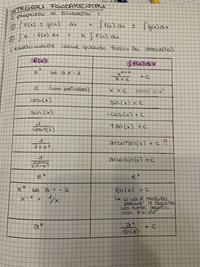 INTEGRALI FONDAMENTALI
proprietà di linearità
① ∫ f(x) ± g(x) dx = ∫ f(x) dx ± ∫ g(x) dx
② ∫ k · f(x) dx = k ∫ f(x) dx
quando faccio la derivata)
f(x) ∫ f(x) dx
xᵃ se a ≠ -1 xᵃ⁺¹/a+1 + c
1 (caso particolare) x + c
cos(x) sin(x) + c
sin(x) -cos(x) + c
1/cos²(x) tan(x) + c
1/1+x² arcotan(x) + c !!
1/√1-x² arcosin(x) + c
eˣ eˣ + c
xᵃ se a = -1 ln(x) + c
x⁻¹ = 1/x ↳ ci va il modulo
perché il logaritmo
con numeri negativi
non esiste
aˣ aˣ/ln(a) + c